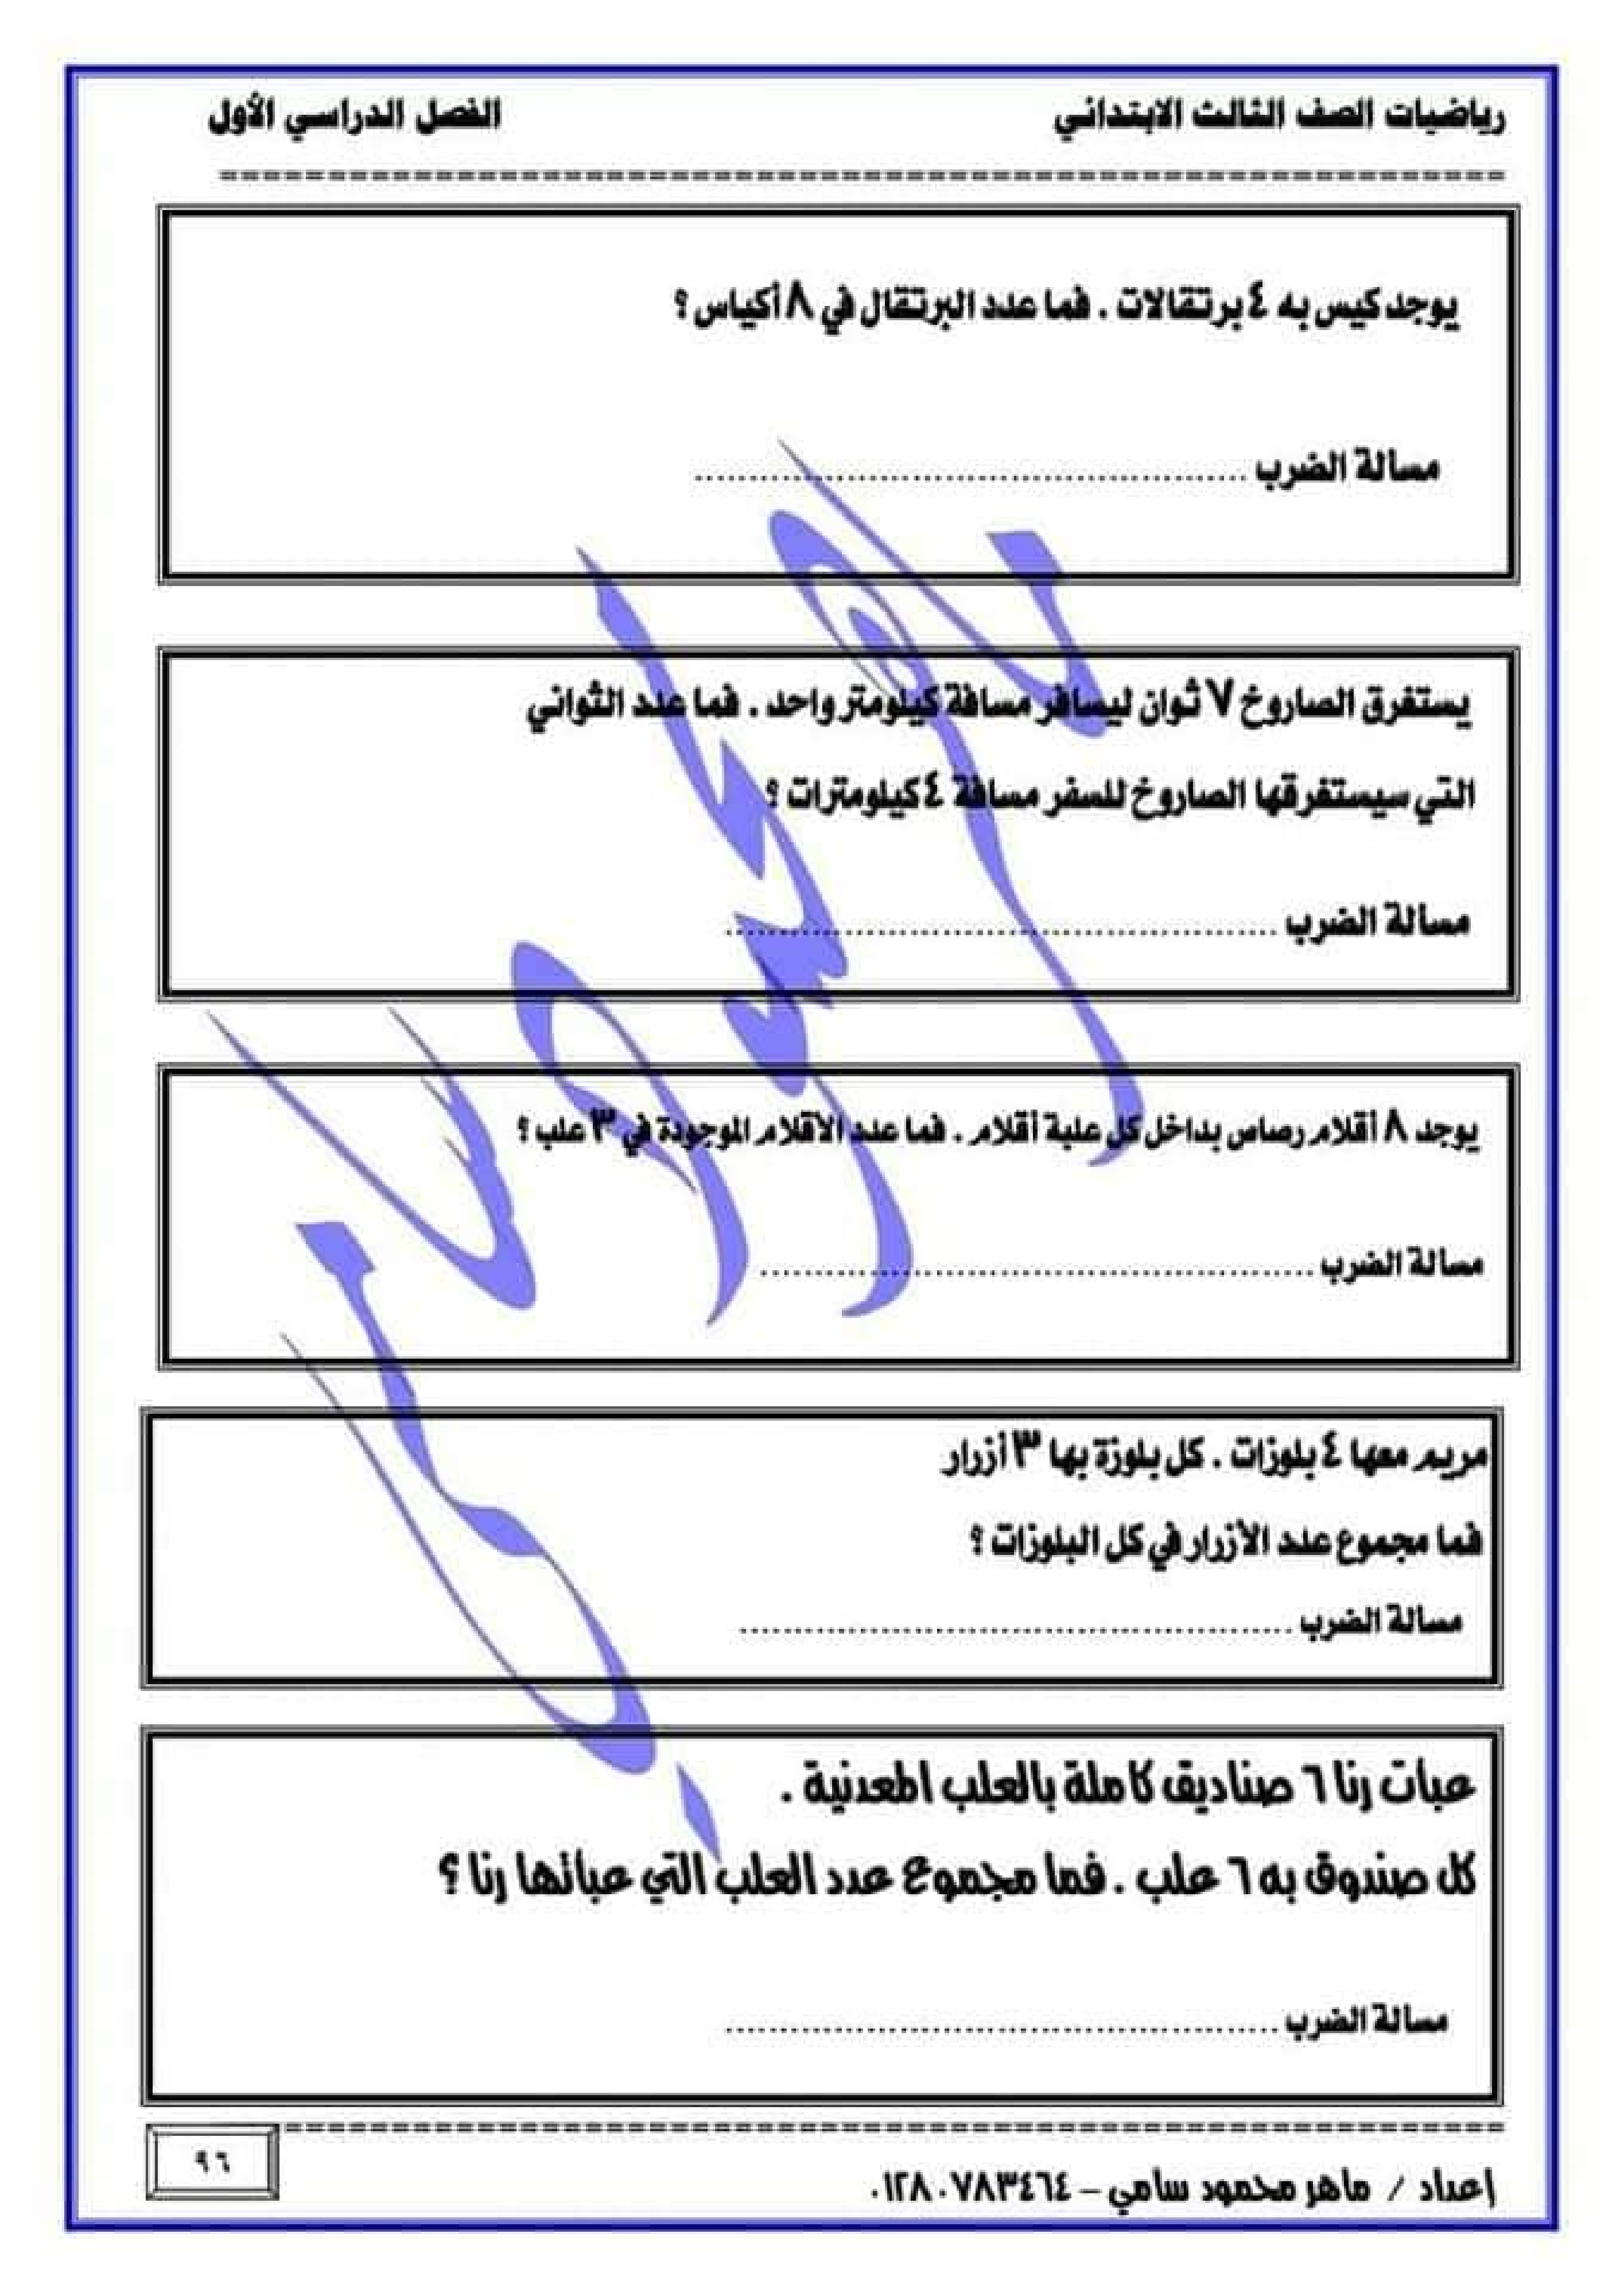 رياضيات الصف الثالث الابتدائي
الفصل الدراسي الأول
يوجد كيس به ٤ برتقالات . فما عدد البرتقال في ٨ أكياس ؟
مسألة الضرب ..................................................
يستغرق الصاروخ ٧ ثوان ليسافر مسافة كيلومتر واحد . فما عدد الثواني
التي سيستغرقها الصاروخ للسفر مسافة ٤ كيلومترات ؟
مسألة الضرب ..................................................
يوجد ٨ أقلام رصاص بداخل كل علبة أقلام . فما عدد الأقلام الموجودة في ٣ علب ؟
مسألة الضرب ..................................................
مريم معها ٤ بلوزات . كل بلوزة بها ٣ أزرار
فما مجموع عدد الأزرار في كل البلوزات ؟
مسألة الضرب ..................................................
عبأت رنا ٦ صناديق كاملة بالعلب المعدنية .
كل صندوق به ٦ علب . فما مجموع عدد العلب التي عبأتها رنا ؟
مسألة الضرب ..................................................
٩٦
إعداد / ماهر محمود سامي – ٠١٢٨٠٧٨٣٤٦٤